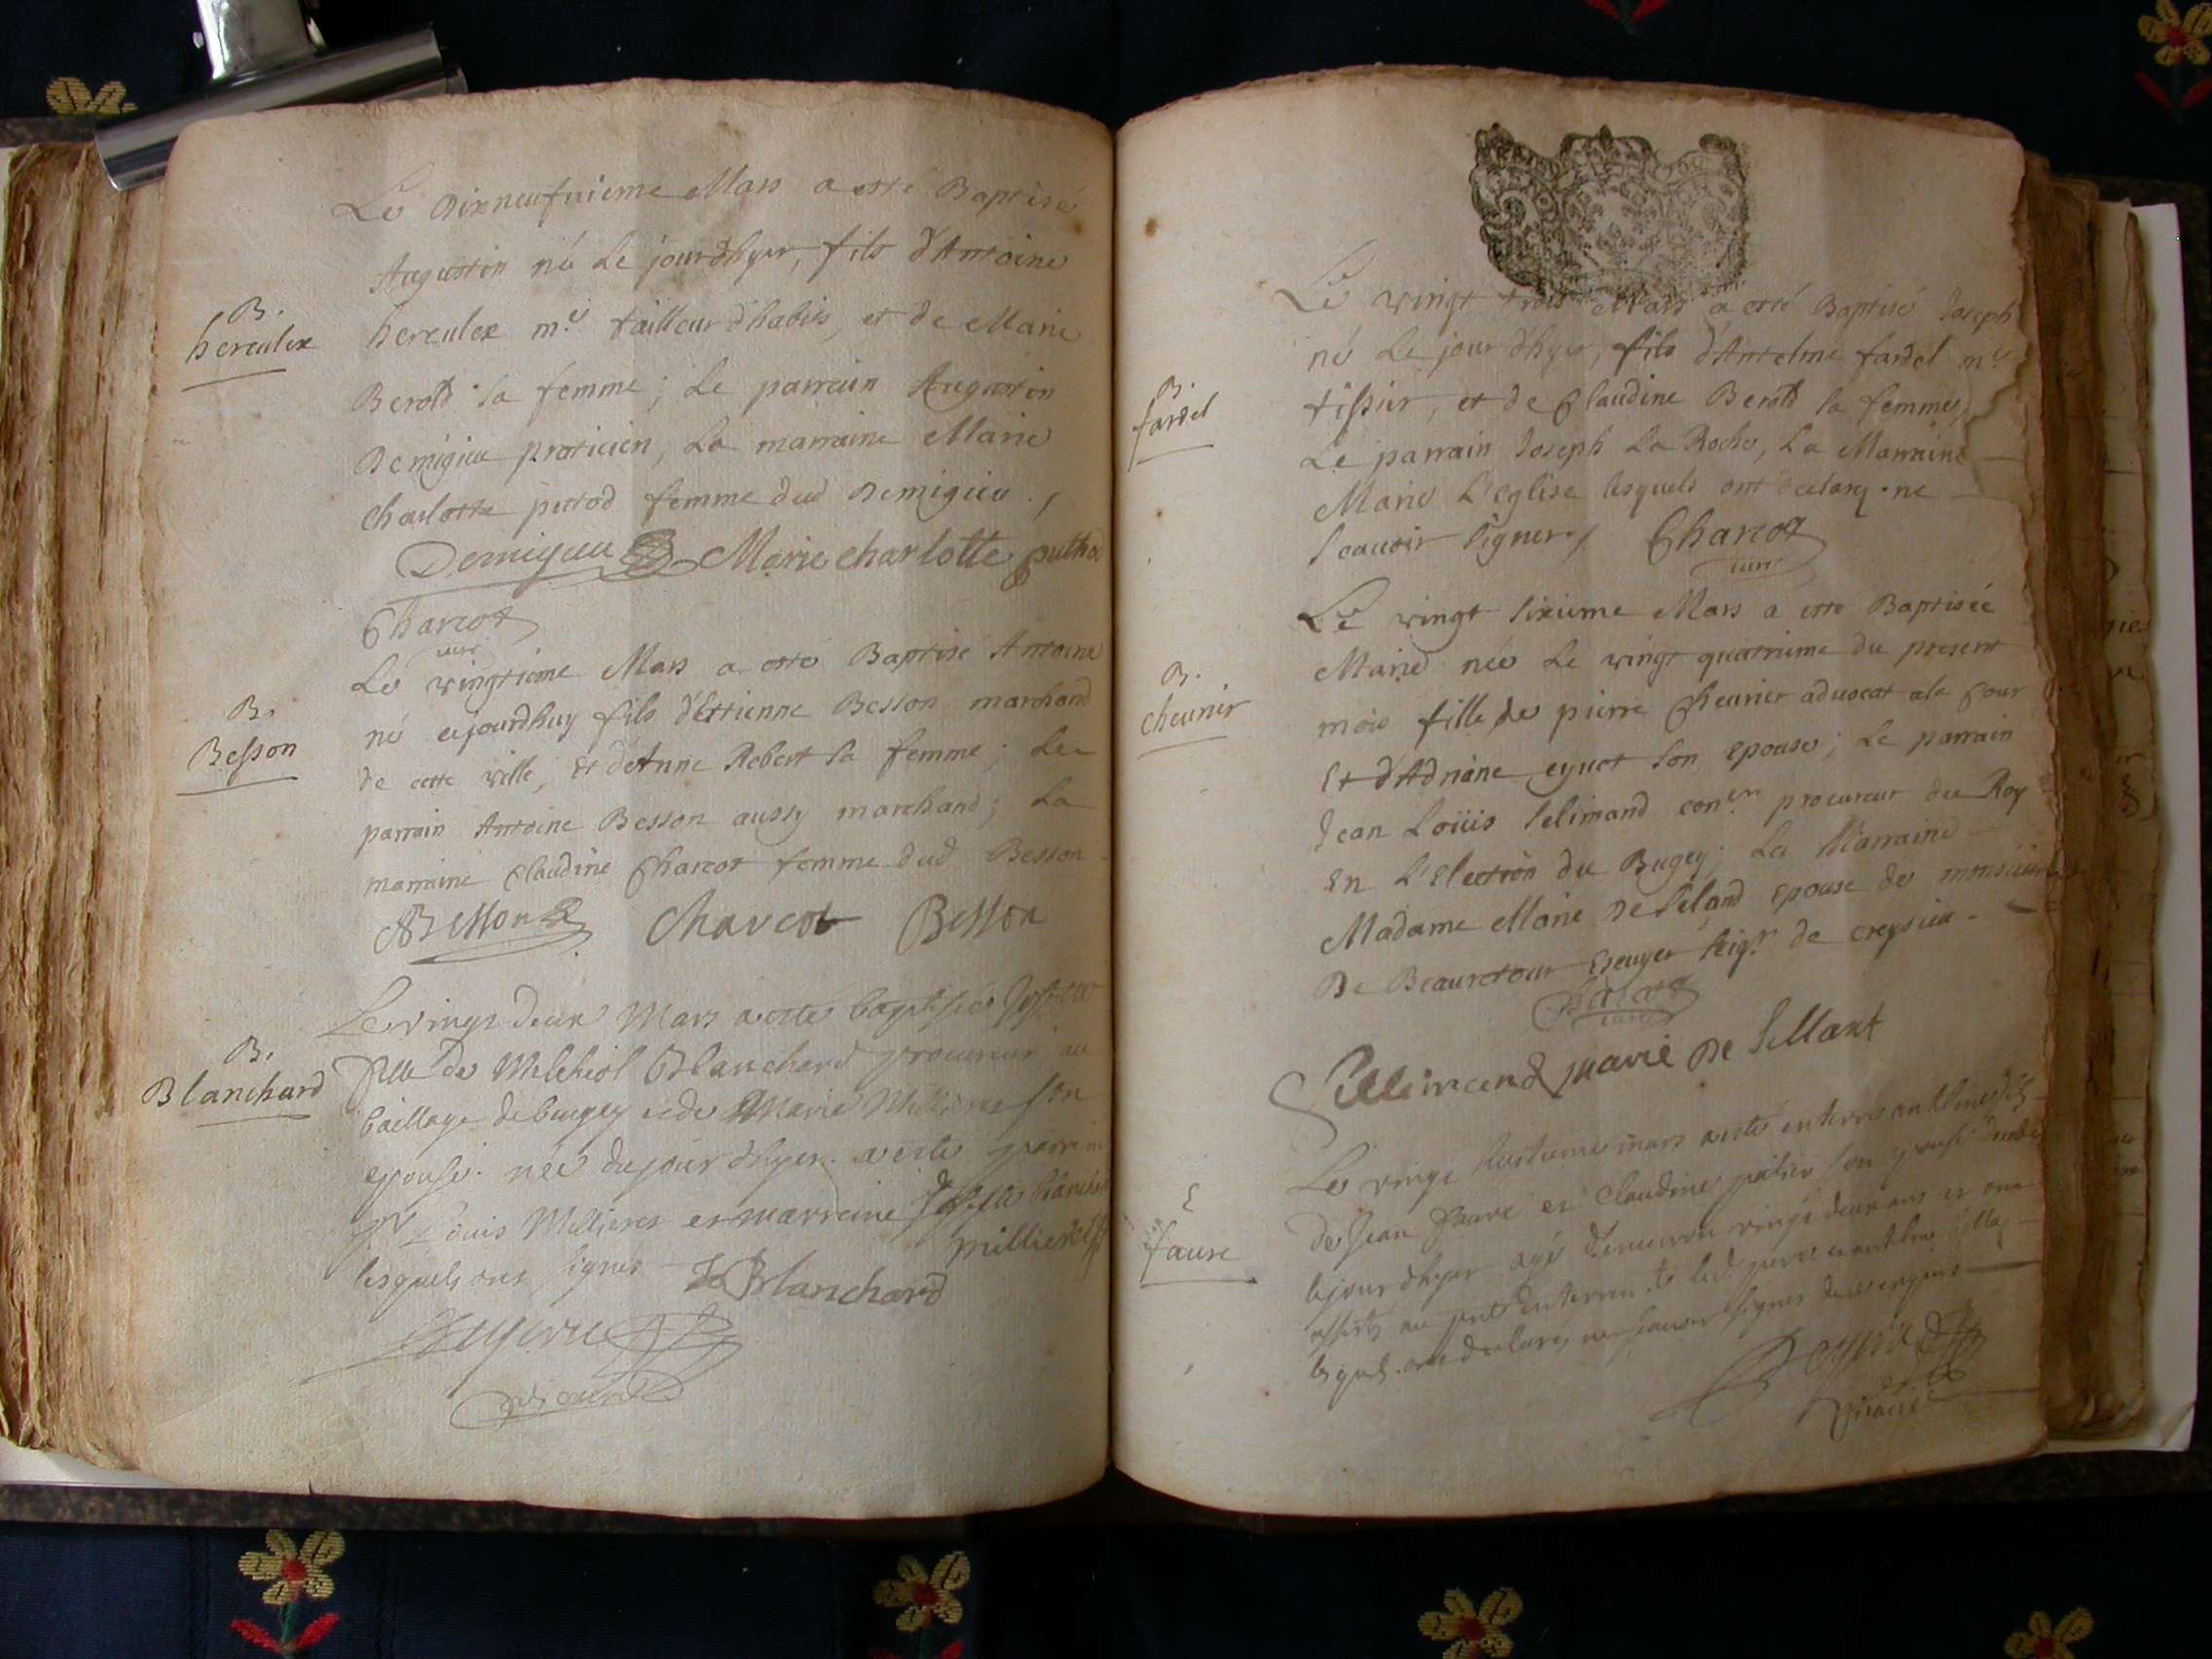 Le dixneufuieme Mars a esté Baptisé
Augustin né Le jourdhyer, fils d'Antoine
B.
herculex
herculex me. tailleur d'habits, et de Marie
Berold sa femme; Le parrain Augustin
Demigieu praticien, La marraine Marie
Charlotte puttod femme dud Demigieu ./
Demigieu Marie charlotte puthod
Charcot
curé
Le vingtieme Mars a esté Baptisé Antoine
B.
Besson
né aujourdhuy fils d'Estienne Besson marchand
de cette ville, Et d'Anne Robert sa femme; Le
parrain Antoine Besson aussy marchand; La
marraine Claudine Charcot femme dud Besson
ABesson Charcot Besson
Le vingt deux Mars a esté baptisée
B.
Blanchard
fille de Melchiol Blanchard procureur au
baillage de bugey et de Marie Millieres son
epouse. née du jour dhyer. a esté parrain
Louis Millieres et marraine
lesquels ont signés
Blanchard
vicaire
Le vingt trois Mars a esté Baptisé Joseph
né Le jour d'hyer, fils d'Antelme fardel me.
B.
fardel
tissier, et de Claudine Berold sa femme,
Le parrain Joseph La Roche, La Marraine
Marie L'eglise lesquels ont declaré ne
scauoir signer ./ Charcot
curé
Le vingt sixieme Mars a esté Baptisée
Marie née Le vingt quatrieme du present
B.
cheurier
mois fille de pierre Cheurier aduocat a la Cour
Et d'Adriane eynot son epouse; Le parrain
Jean Loüis Selimand con.er procureur du Roy
En L'election du Bugey; La Marraine
Madame Marie De Seland epouse de monsieur
De Beauretour Escuyer seigr. de creysieu
Charcot
curé
Sellimand Marie De Sellant
Le vingt huitieme mars a esté enterré antelme fils
E
faure
de Jean faure et Claudine son
le jour dhyer agé d'enuiron vingt deux ans et ont
lesquels ont declarés ne scauoir signer
vicaire